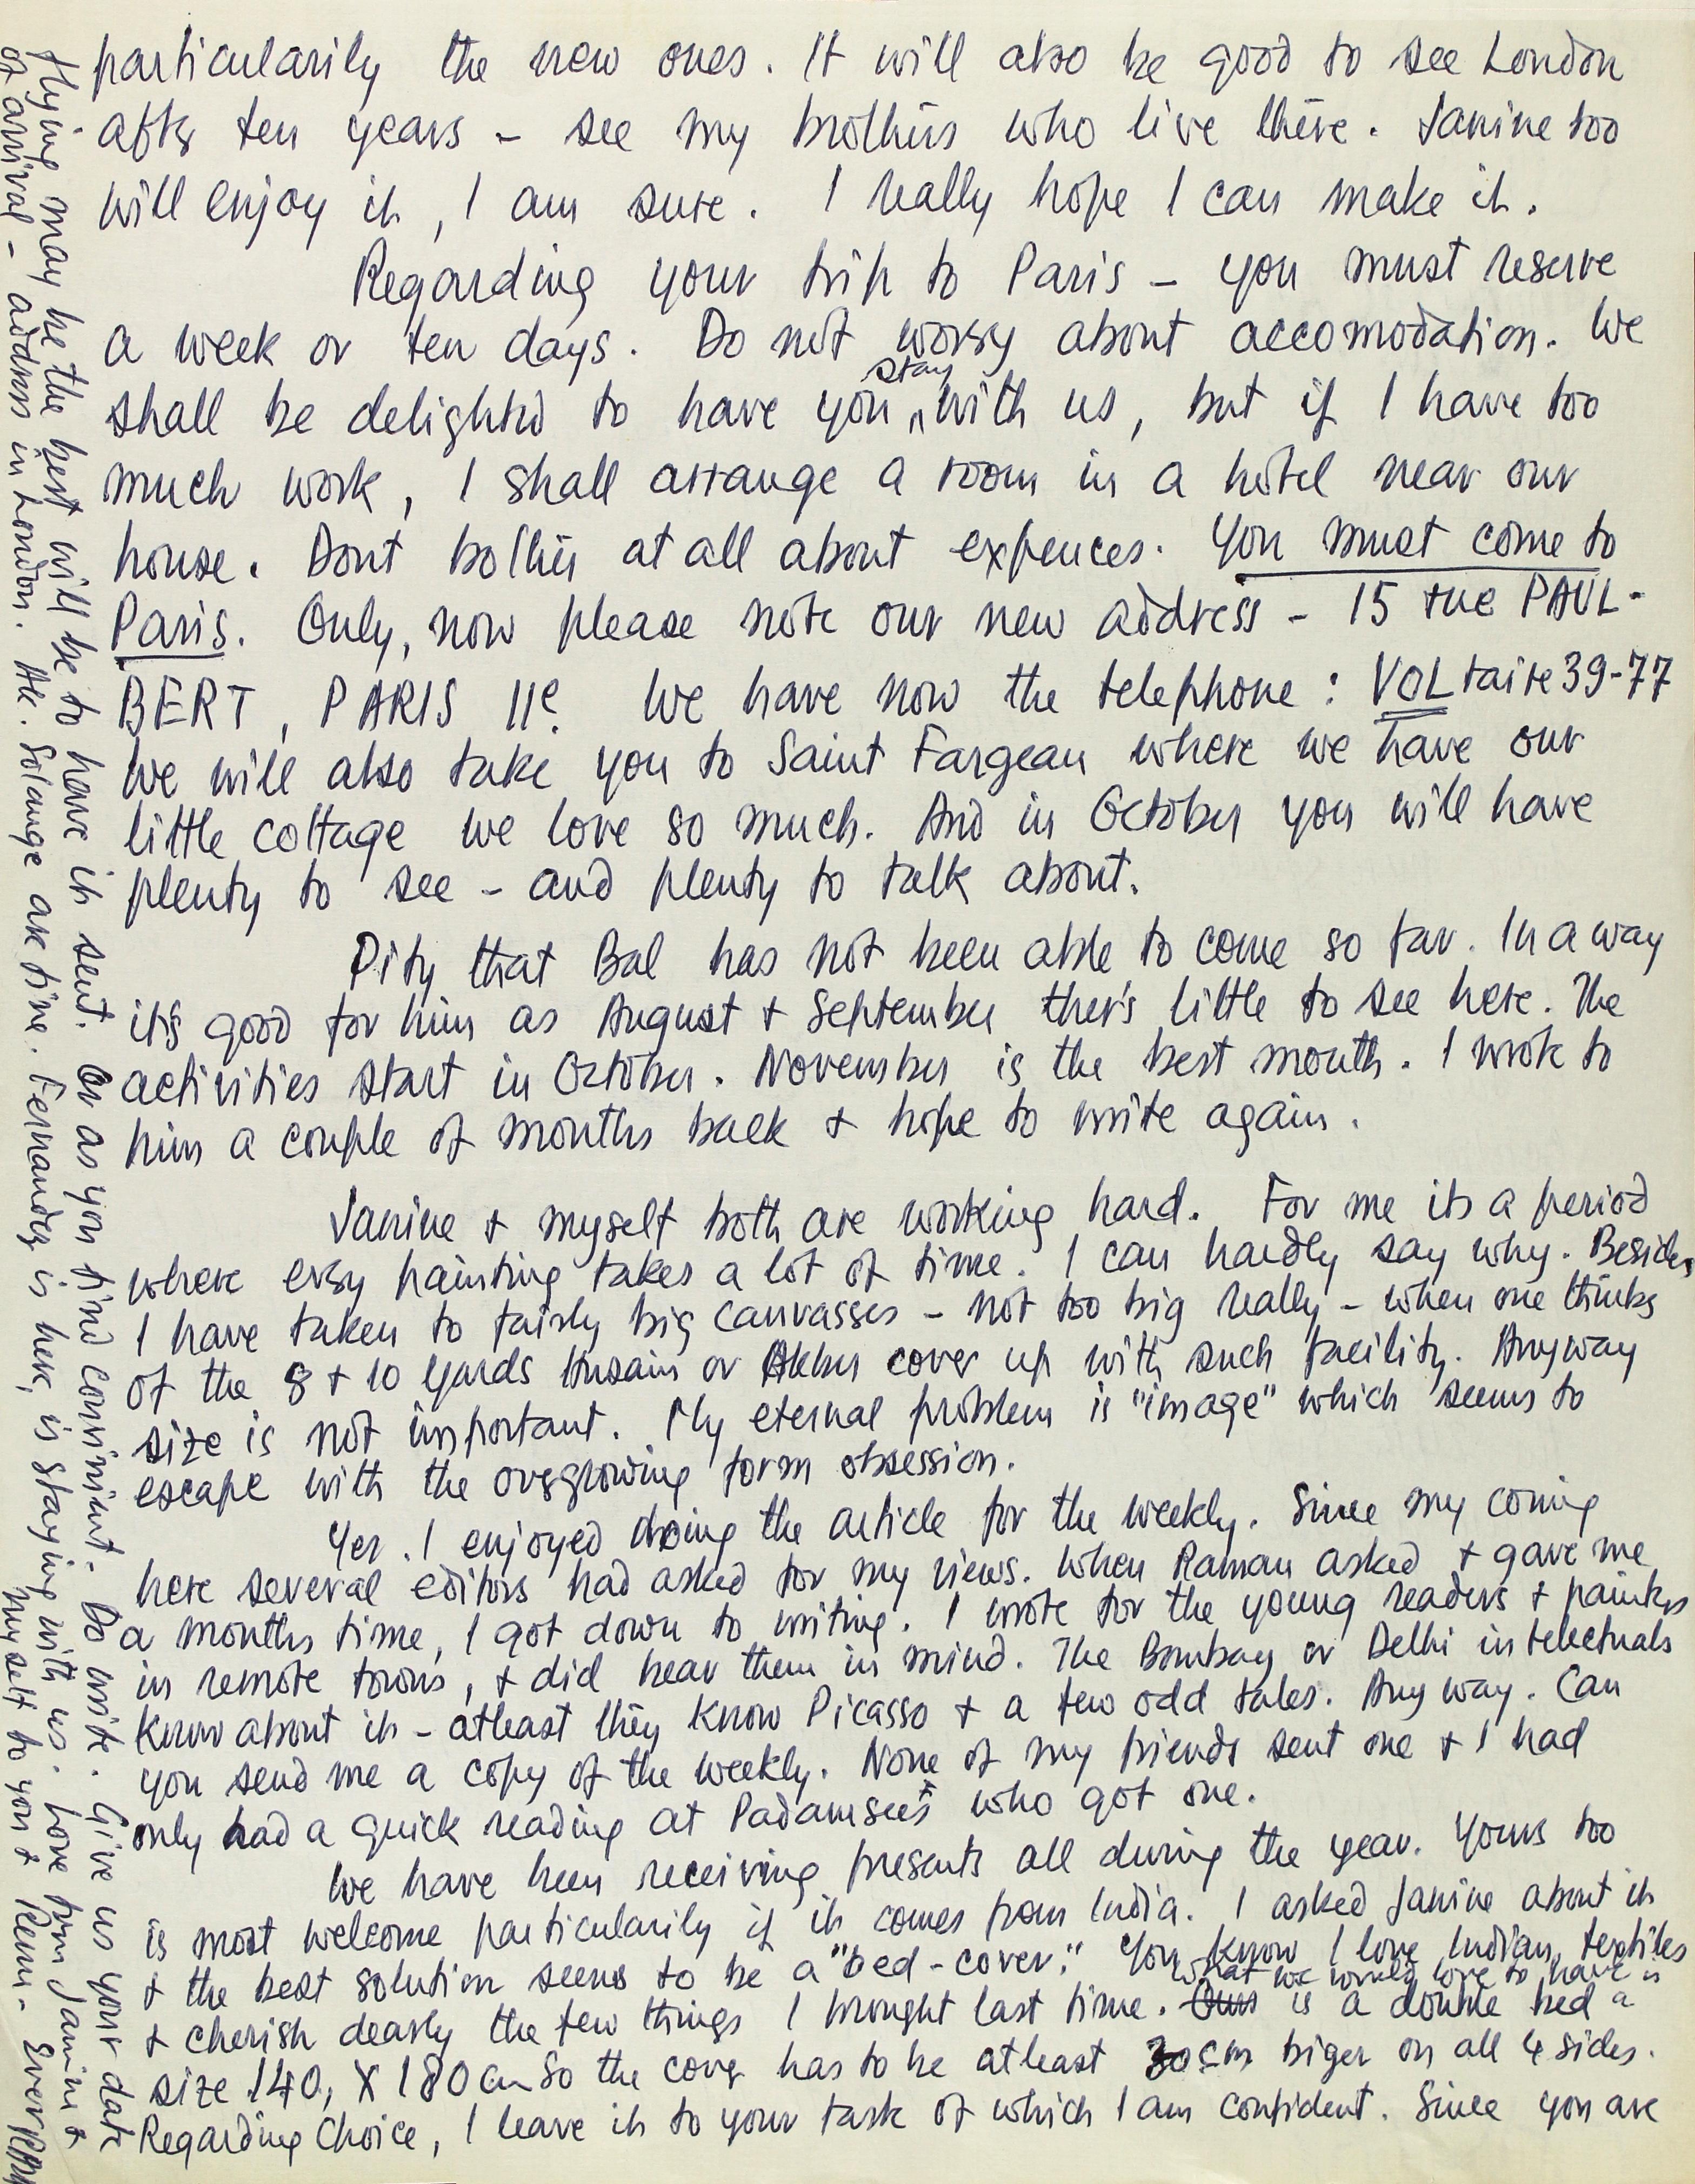 particularily the new ones. It will also be good to see London
after ten years – see my brothers who live there. Janine too
will enjoy it, I am sure. I really hope I can make it.
Regarding your trip to Paris – you must reserve
a week or ten days. Do not worry about accomodation. We
shall be delighted to have you stay with us, but if I have too
much work, I shall arrange a room in a hotel near our
house. Dont bother at all about expences. You must come to
Paris. Only, now please note our new address – 15 rue PAUL-
BERT, PARIS 11e. We have now the telephone : VOLtaire 39-77
We will also take you to Saint Fargeau where we have our
little cottage we love so much. And in October you will have
plenty to see – and plenty to talk about.
Pity that Bal has not been able to come so far. In a way
it's good for him as August + September ther's little to see here. The
activities start in October. November is the best month. I wrote to
him a couple of months back + hope to write again.
Janine + myself both are working hard. For me its a period
where every painting takes a lot of time. I can hardly say why. Besides
I have taken to fairly big canvasses – not too big really – when one thinks
of the 8 + 10 yards Husain or Akbar cover up with such facility. Anyway
size is not important. My eternal problem is "image" which seems to
escape with the overgrowing form obsession.
Yes. I enjoyed doing the article for the weekly. Since my coming
here several editors had asked for my views. When Raman asked + gave me
a months time, I got down to writing. I wrote for the young readers + painters
in remote towns, + did bear them in mind. The Bombay or Delhi intelectuals
know about it – atleast they know Picasso + a few odd tales. Any way. Can
you send me a copy of the weekly. None of my friends sent one + I had
only had a quick reading at Padamsee's who got one.
We have been receiving presents all during the year. Yours too
is most welcome particularily if it comes from India. I asked Janine about it
+ the best solution seems to be a "bed-cover". You know I love Indian textiles
+ cherish dearly the few things I brought last time. Ours what we would love to have is is a double bed a
size 140, X 180 cm So the cover has to be atleast 30 cm biger on all 4 sides.
Regarding Choice, I leave it to your task of which I am confident. Since you are
flying may be the best will be to have it sent. Or as you find convinient. Do write. Give us your date
of arrival – address in London. Ale. Solange are fine. Fernandez is here, is staying with us. Love from Janine +
myself to you + Renu – Ever RAZA